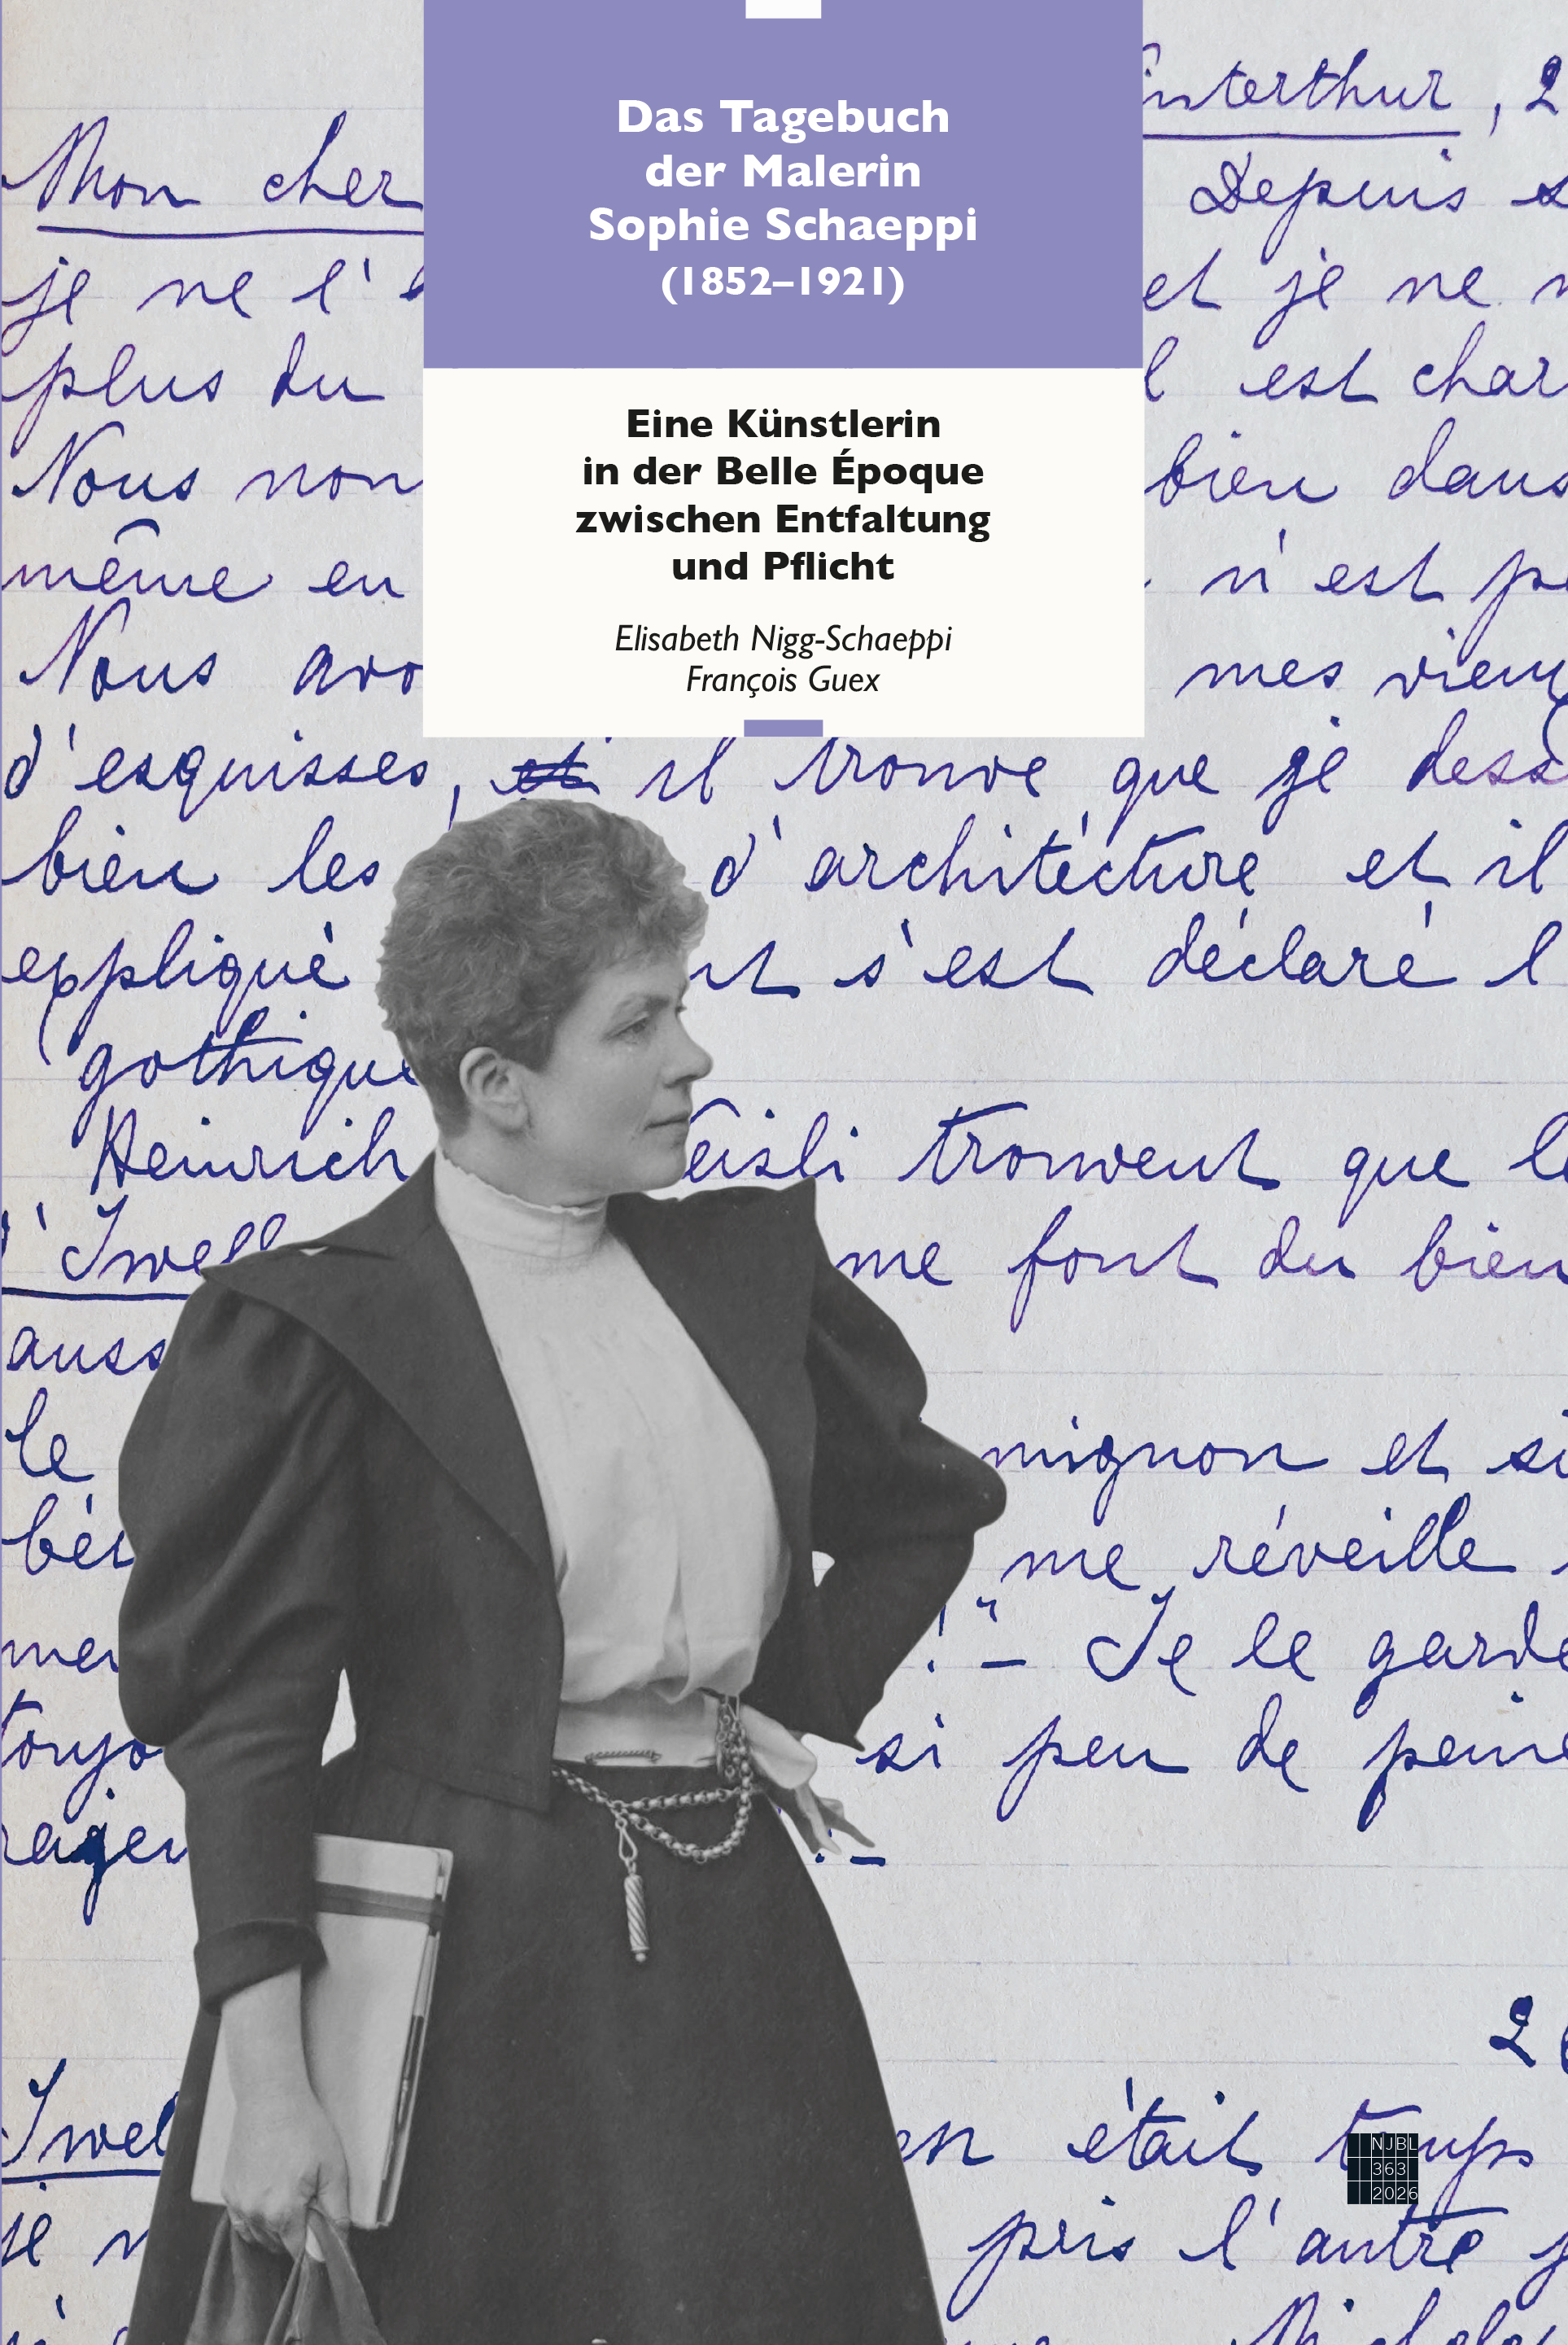 Das Tagebuch
der Malerin
Sophie Schaeppi
(1852–1921)
Eine Künstlerin
in der Belle Époque
zwischen Entfaltung
und Pflicht
Elisabeth Nigg-Schaeppi
François Guex
interthur, 2
Mon cher Depuis s
je ne l' et je ne
plus du est char
Nous non bien dans
même en n'est pe
Nous avo mes vieux
d'esquisses, et il trouve que je dess
bien les d'architecture et il
expliqué s'est déclaré l
gothique
Heinrich eisli trouvent que le
d'Iwell me font du bien
auss
le mignon et si
béb me réveille
mer !"– Je le garde
toujo si peu de peine
rager . –
2
Iwel en était temps
je n pris l'autre
NJBL
363
2026